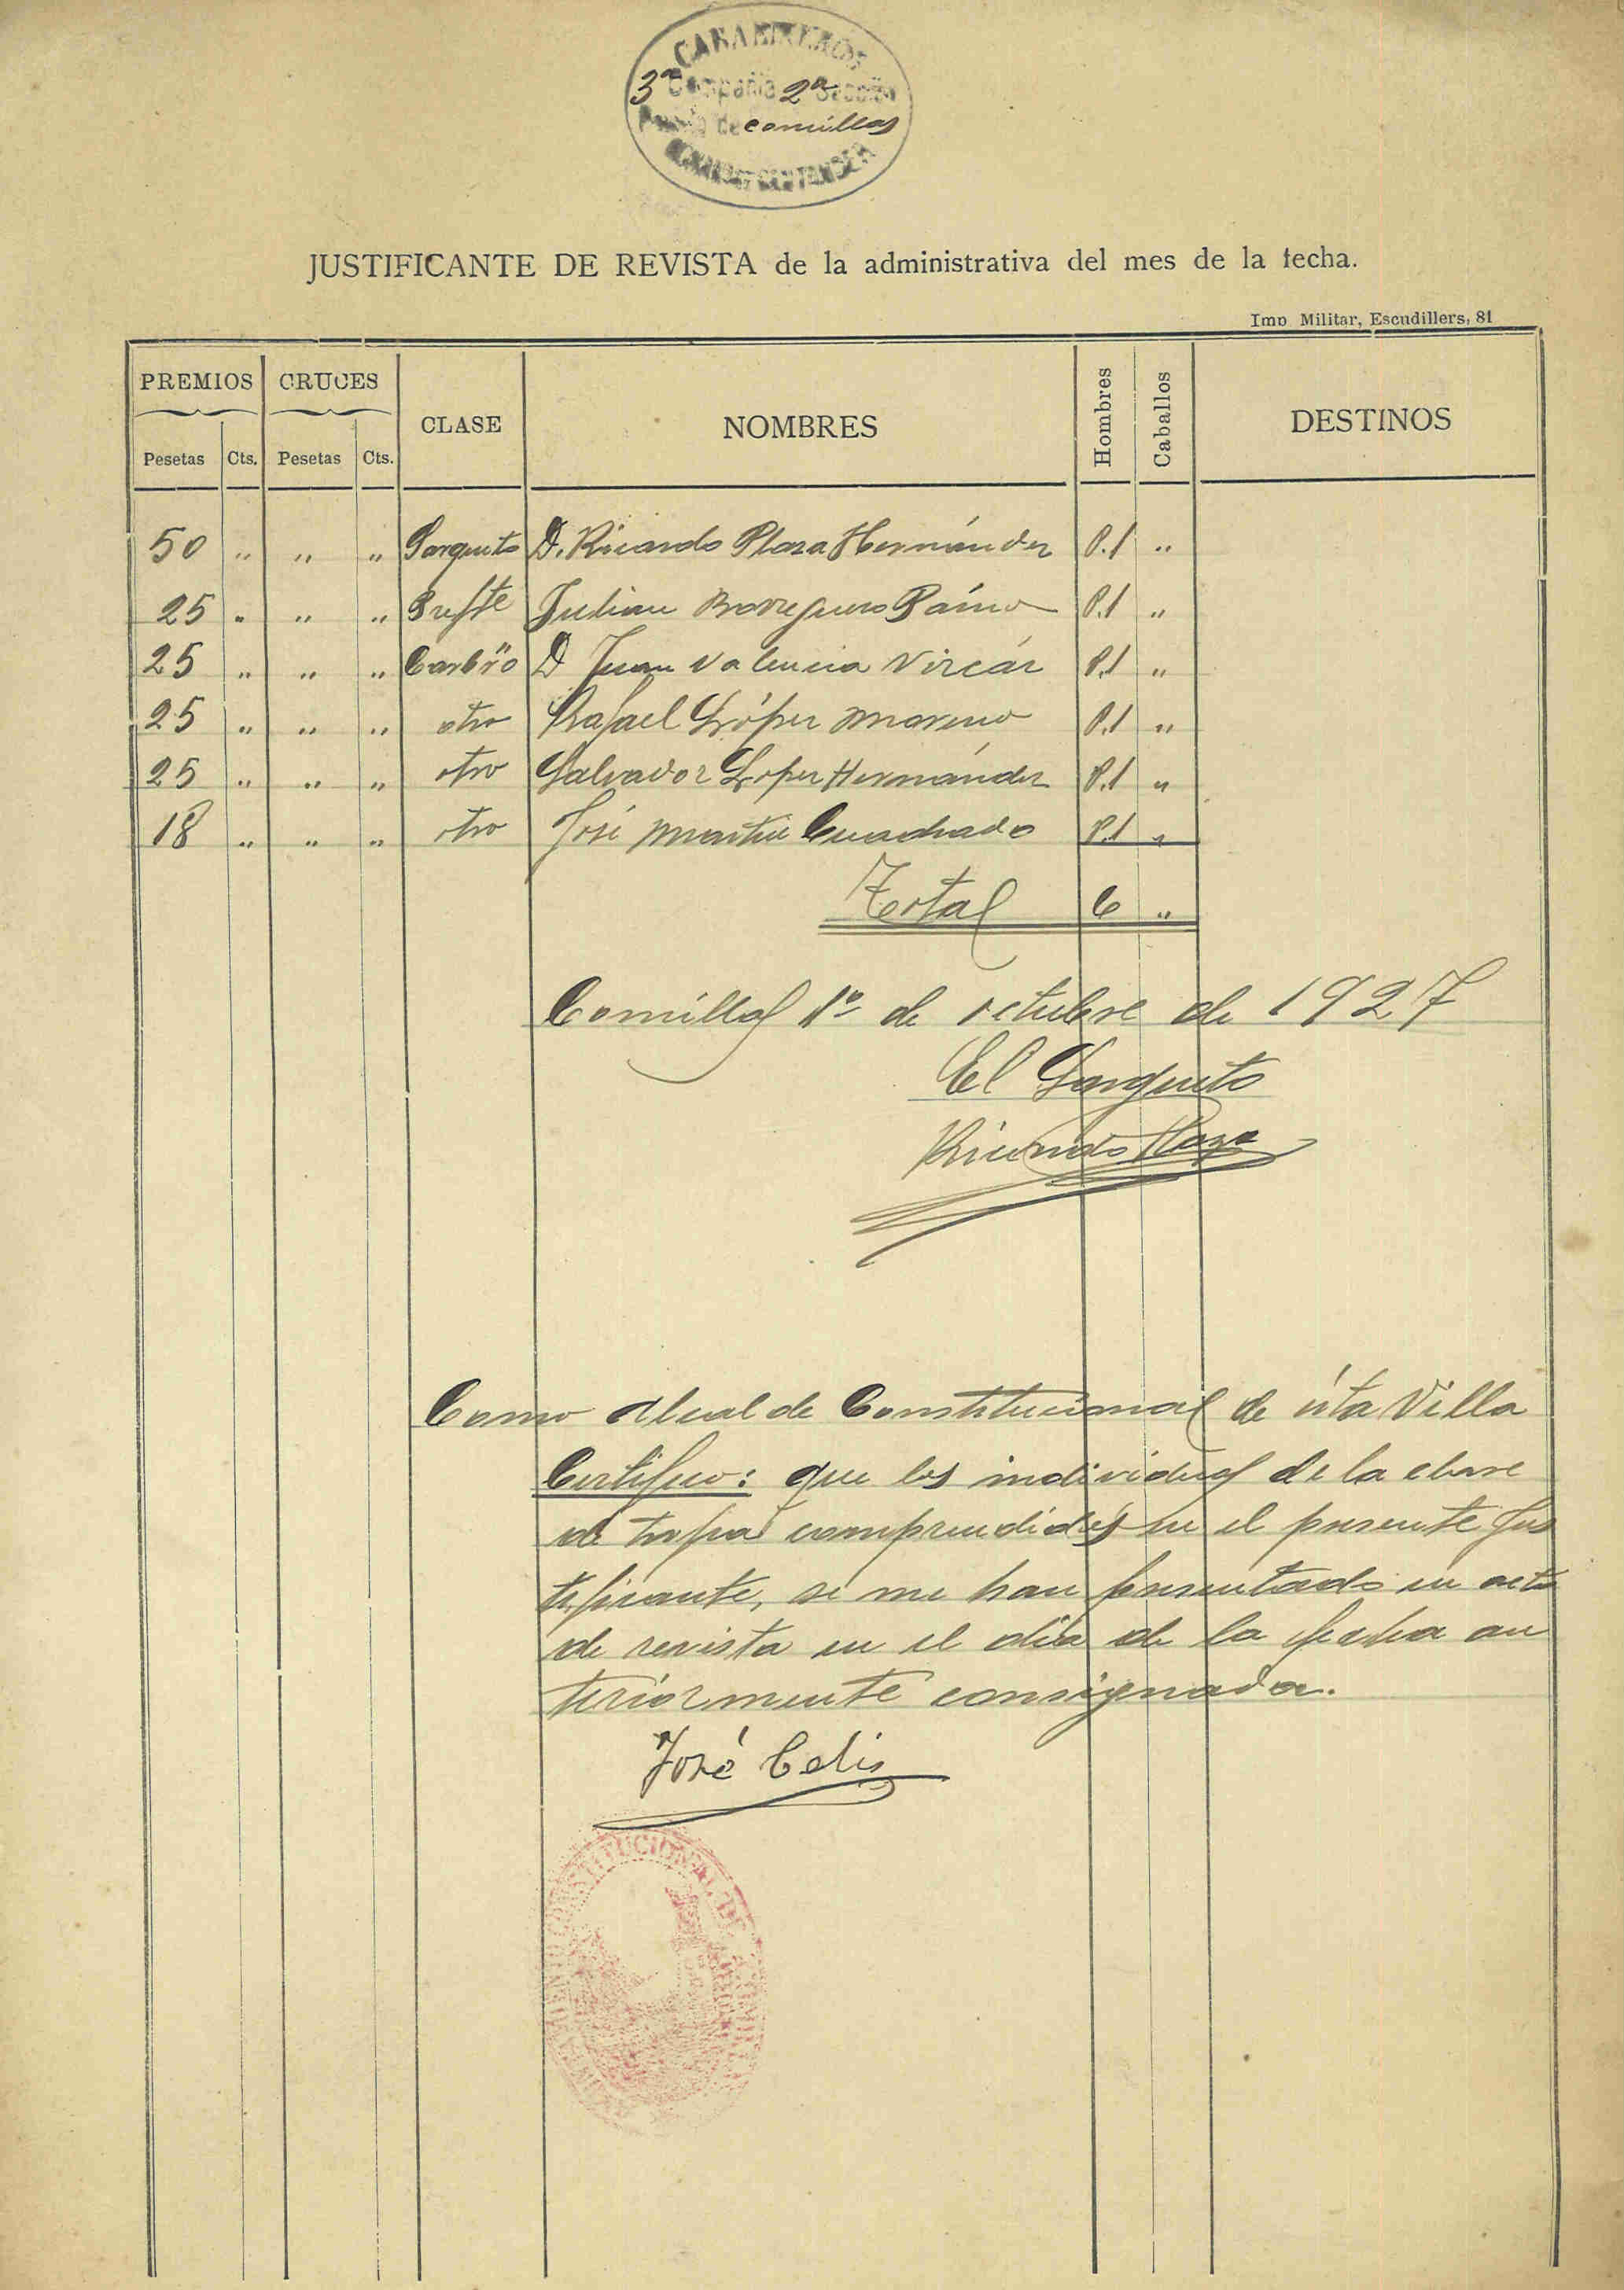 CARABINEROS
3ª Compañía 2ª Sección
Puesto de Comillas
SANTANDER
JUSTIFICANTE DE REVISTA de la administrativa del mes de la fecha.
Imp Militar, Escudillers, 81
PREMIOS CRUCES CLASE NOMBRES Hombres Caballos DESTINOS
Pesetas Cts. Pesetas Cts.
50 " " " Sargento D. Ricardo Plaza Hernández P.1 "
25 " " " Julian Borreguero P.1 "
25 " " " D Juan Valencia P.1 "
25 " " " otro Rafael López Moreno P.1 "
25 " " " otro Salvador Lopez Hernández P.1 "
18 " " " otro José Martin Cuadrado P.1 "
Total 6 "
Comillas 1º de octubre de 1927
El Sargento
Ricardo Plaza
Como Alcalde Constitucional de ésta Villa
Certifico: que los individuos de la clase
de tropa comprendidos en el presente Jus
tificante, se me han presentado en acto
de revista en el dia de la fecha an
teriormente consignada.
José Celis
CONSTITUCIONAL DE